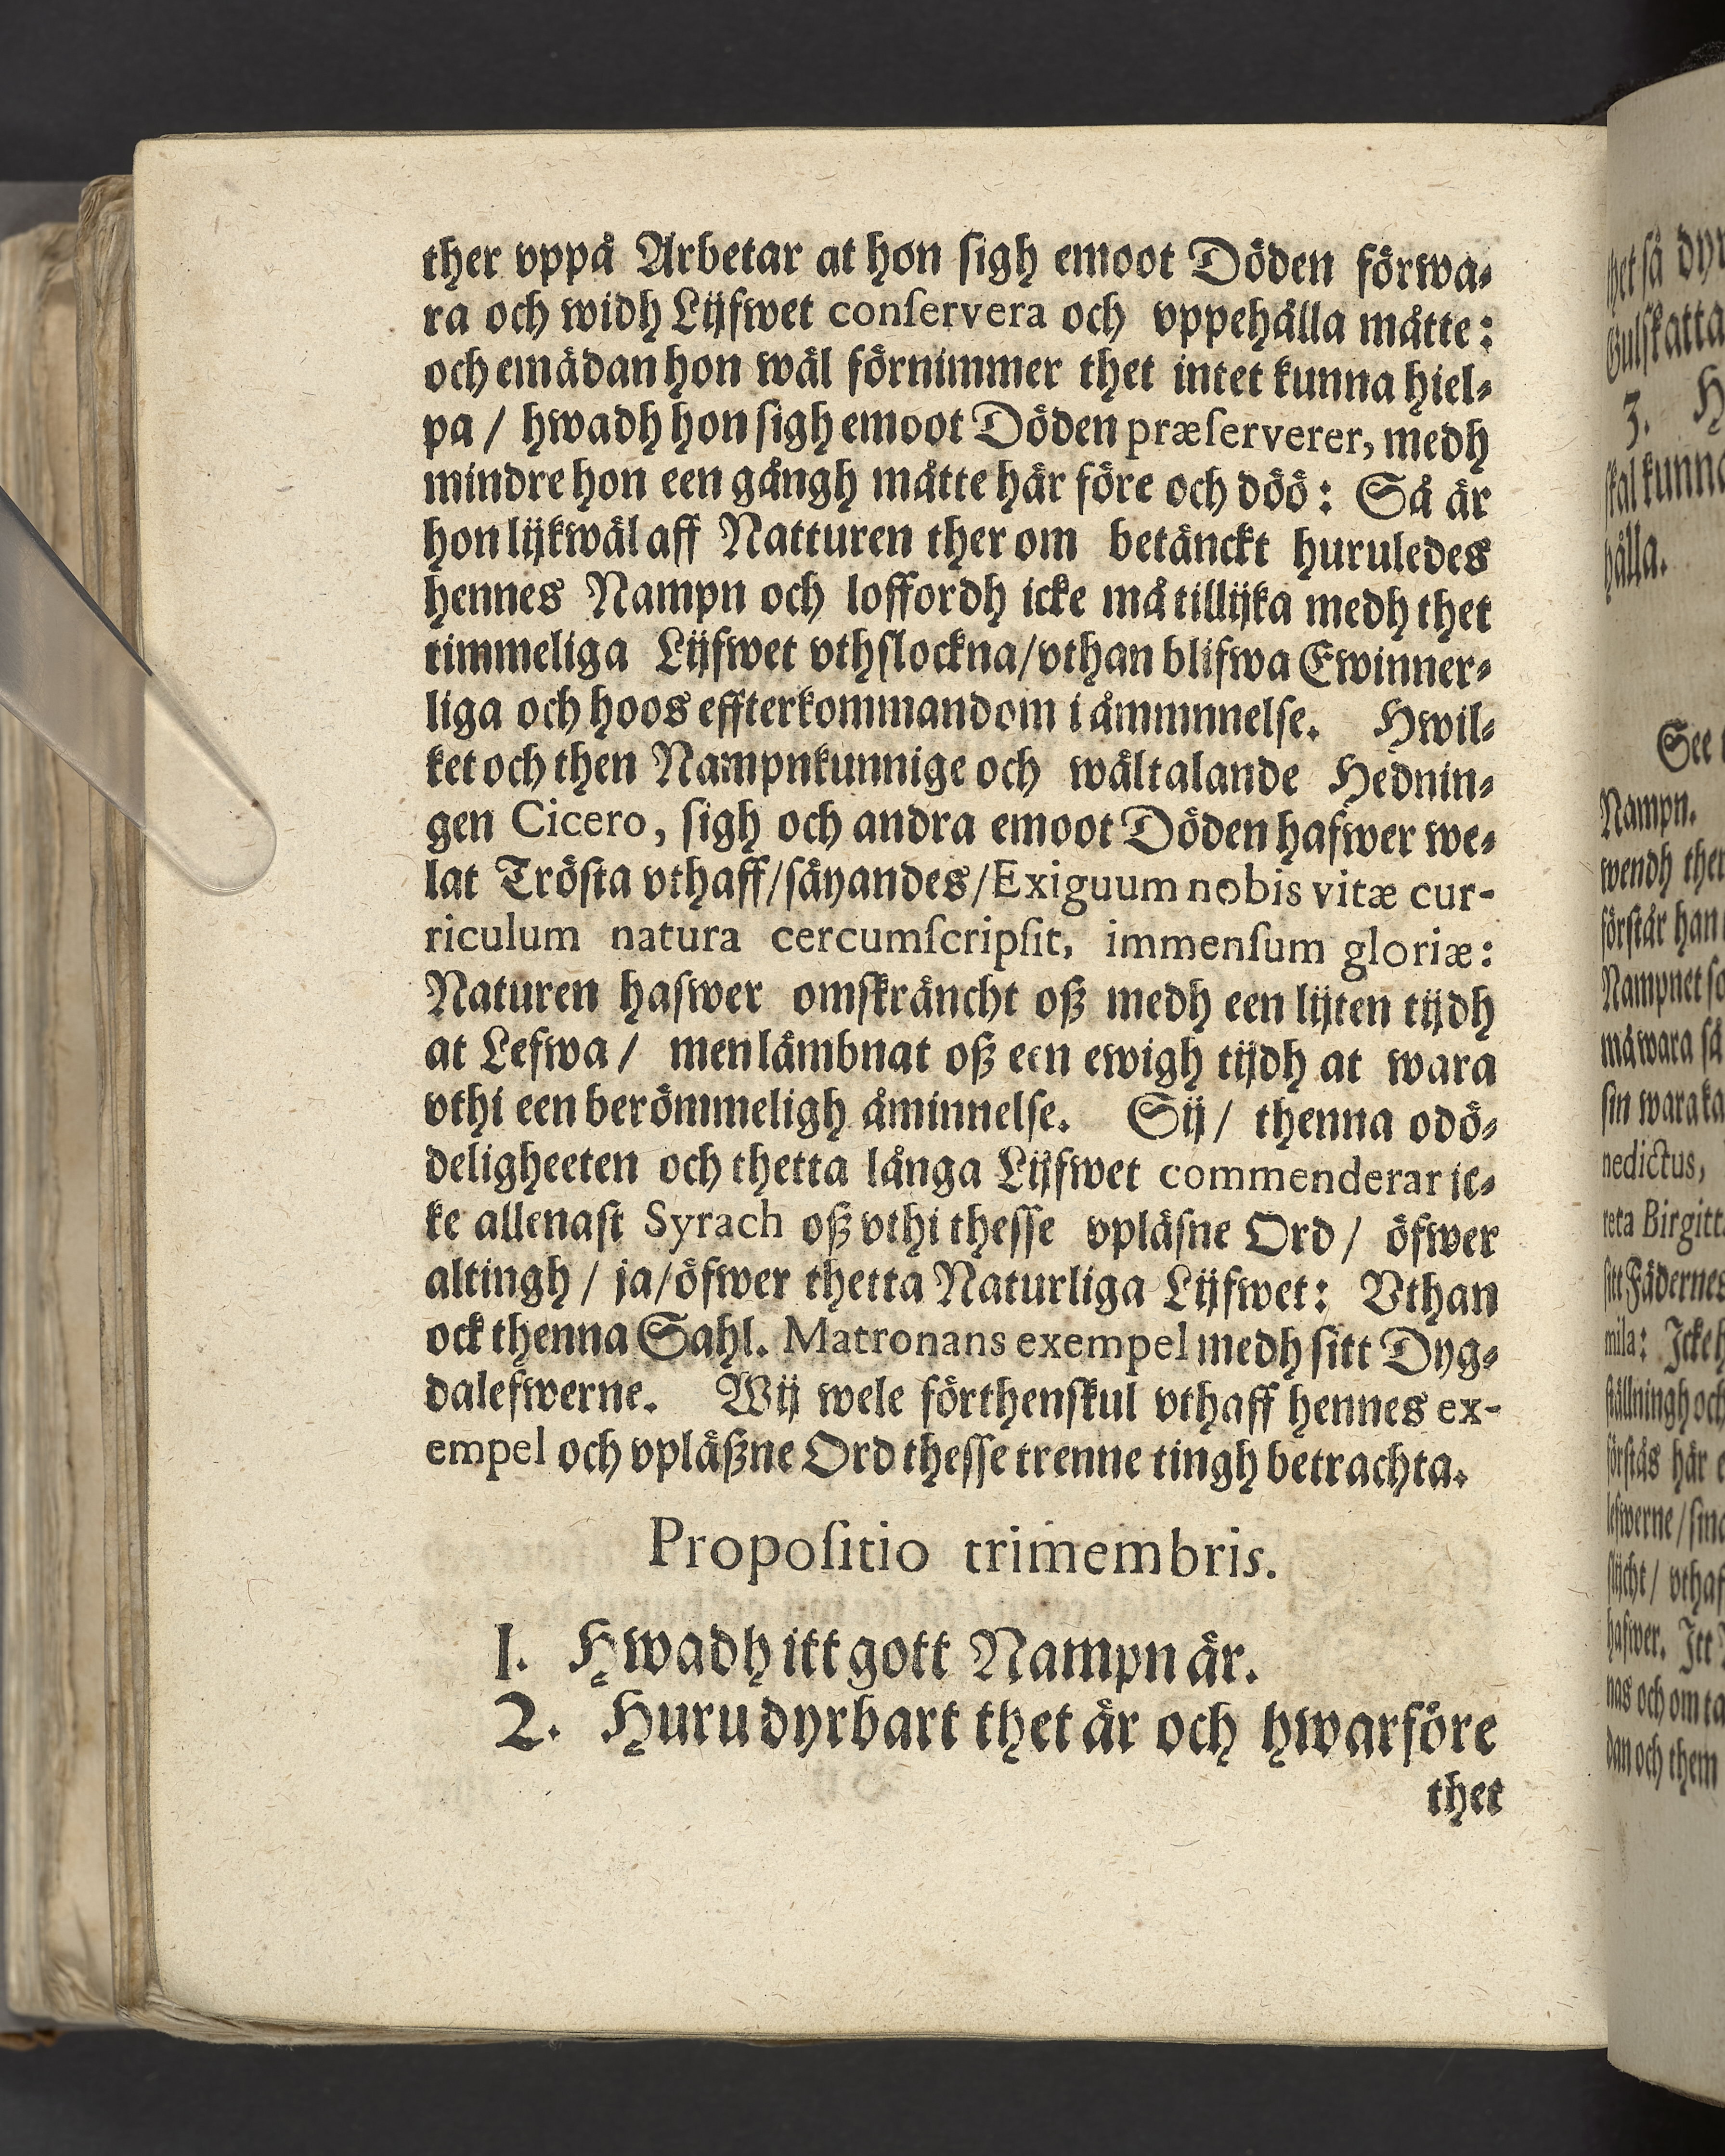 ther vppå Arbetar at hon sigh emoot Döden förwa⸗
ra och widh Lijfwet conſervera och vppehålla måtte:
och emädan hon wäl förnimmer thet intet kunna hiel⸗
pa / hwadh hon sigh emoot Döden præſerverer, medh
mindre hon een gångh måtte här före och döö: Så är
hon lijkwäl aff Natturen ther om betänckt huruledes
hennes Nampn och loffordh icke må tillijka medh thet
timmeliga Lijfwet vthslockna/vthan blifwa Ewinner⸗
liga och hoos effterkommandom i åmmnnelse. Hwil⸗
ket och then Nampnkunnige och wältalande Hednin⸗
gen Cicero, sigh och andra emoot Döden hafwer we⸗
lat Trösta vthaff/säyandes/Exiguum nobis vitæ cur-
riculum natura cercumſcripſit, immenſum gloriæ:
Naturen hafwer omskräncht oß medh een lijten tijdh
at Lefwa / men lämbnat oß een ewigh tijdh at wara
vthi een berömmeligh åminnelse. Sij / thenna odö⸗
deligheeten och thetta långa Lijfwet commenderar ic⸗
ke allenast Syrach oß vthi thesse vpläsne Ord / öfwer
altingh / ja/öfwer thetta Naturliga Lijfwet: Vthan
ock thenna Sahl. Matronans exempel medh sitt Dyg⸗
dalefwerne. Wij wele förthenskul vthaff hennes ex-
empel och vpläßne Ord thesse trenne tingh betrachta.
Propoſitio trimembris.
1. Hwadh itt gott Nampn är.
2. Huru dyrbart thet är och hwarföre
thet
3.
hålla.
See
Nampn.
wendh
förstår han
må wara så
nedictus,
reta Birgitt
mila:
förstås här
hafwer. Itt
nas och om
dan och them